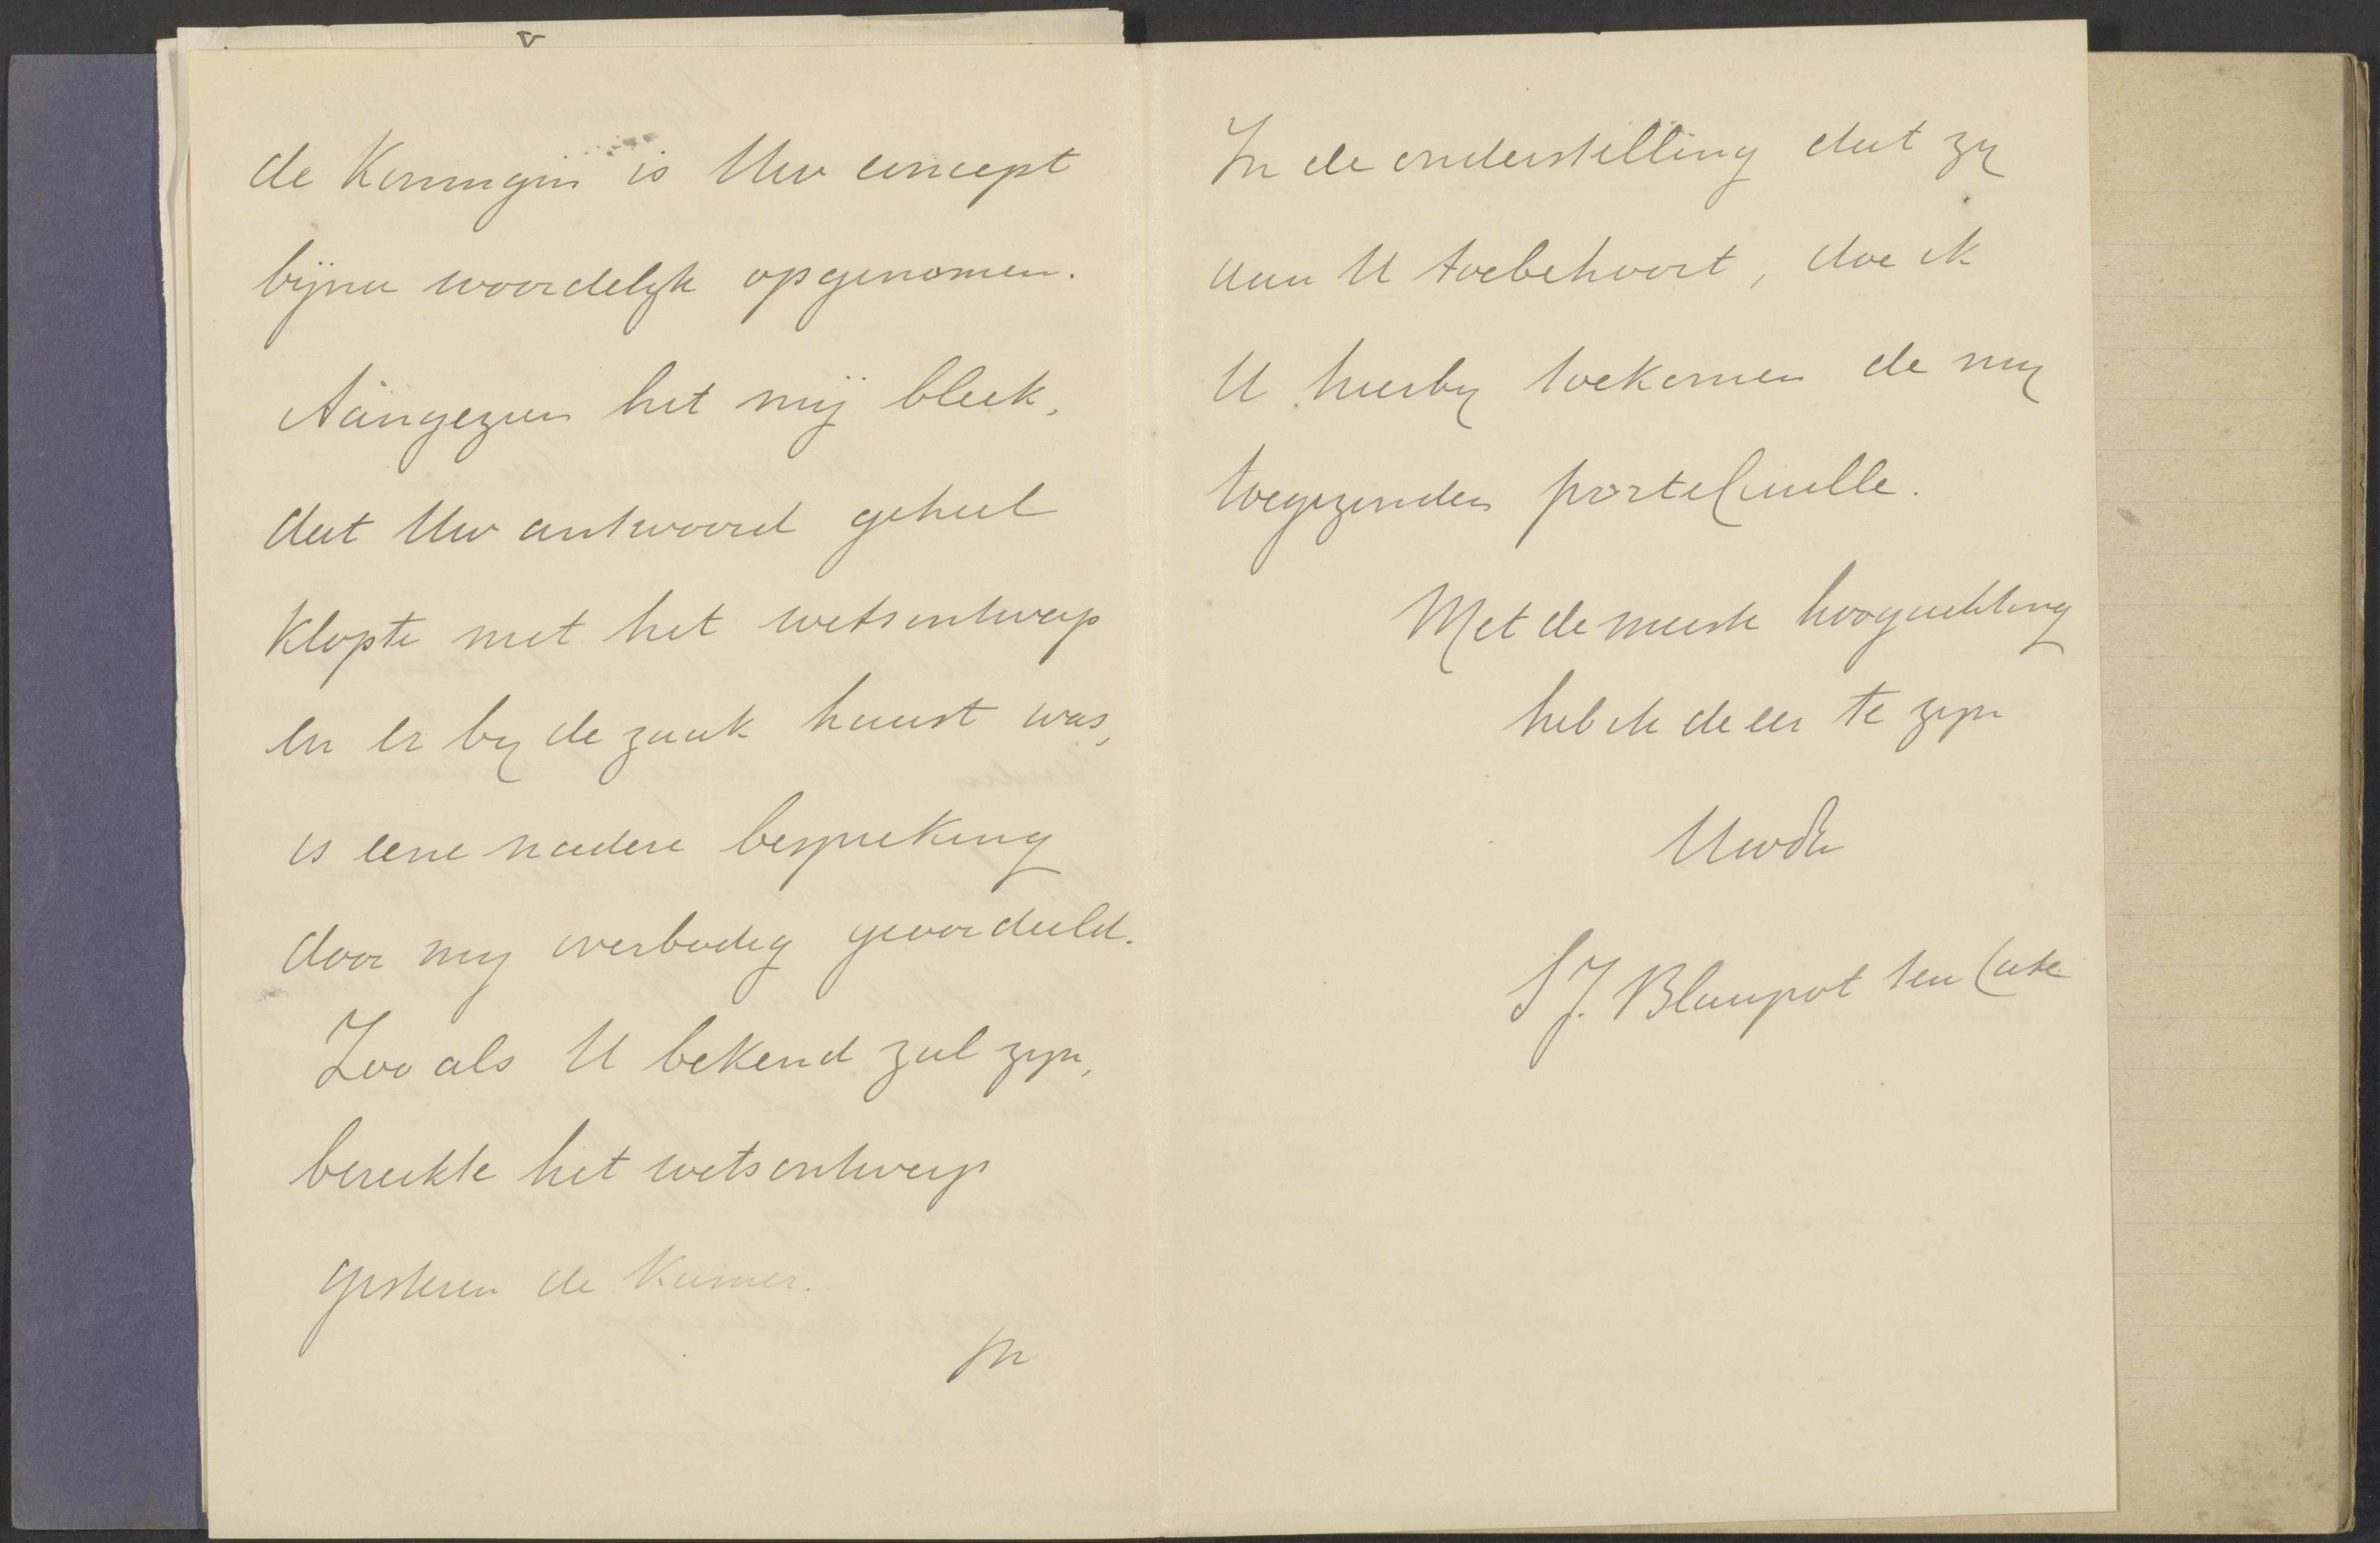 de Koningin is Uw concept
bijna woordelijk opgenomen.
Aangezien het mij bleek,
dat Uw antwoord geheel
klopte met het wetsontwerp
en er bij de zaak haast was,
is eene nadere bespreking
door mij overbodig geoordeeld.
Zooals U bekend zal zijn,
bereikte het wetsontwerp
gisteren de Kamer.
In
In de onderstelling dat zij
aan U toebehoort, doe ik
U hierbij toekomen de mij
toegezonden portefeuille.
Met de meeste hoogachting
heb ik de eer te zijn
Uwdv
S J. Blaupot ten Cate